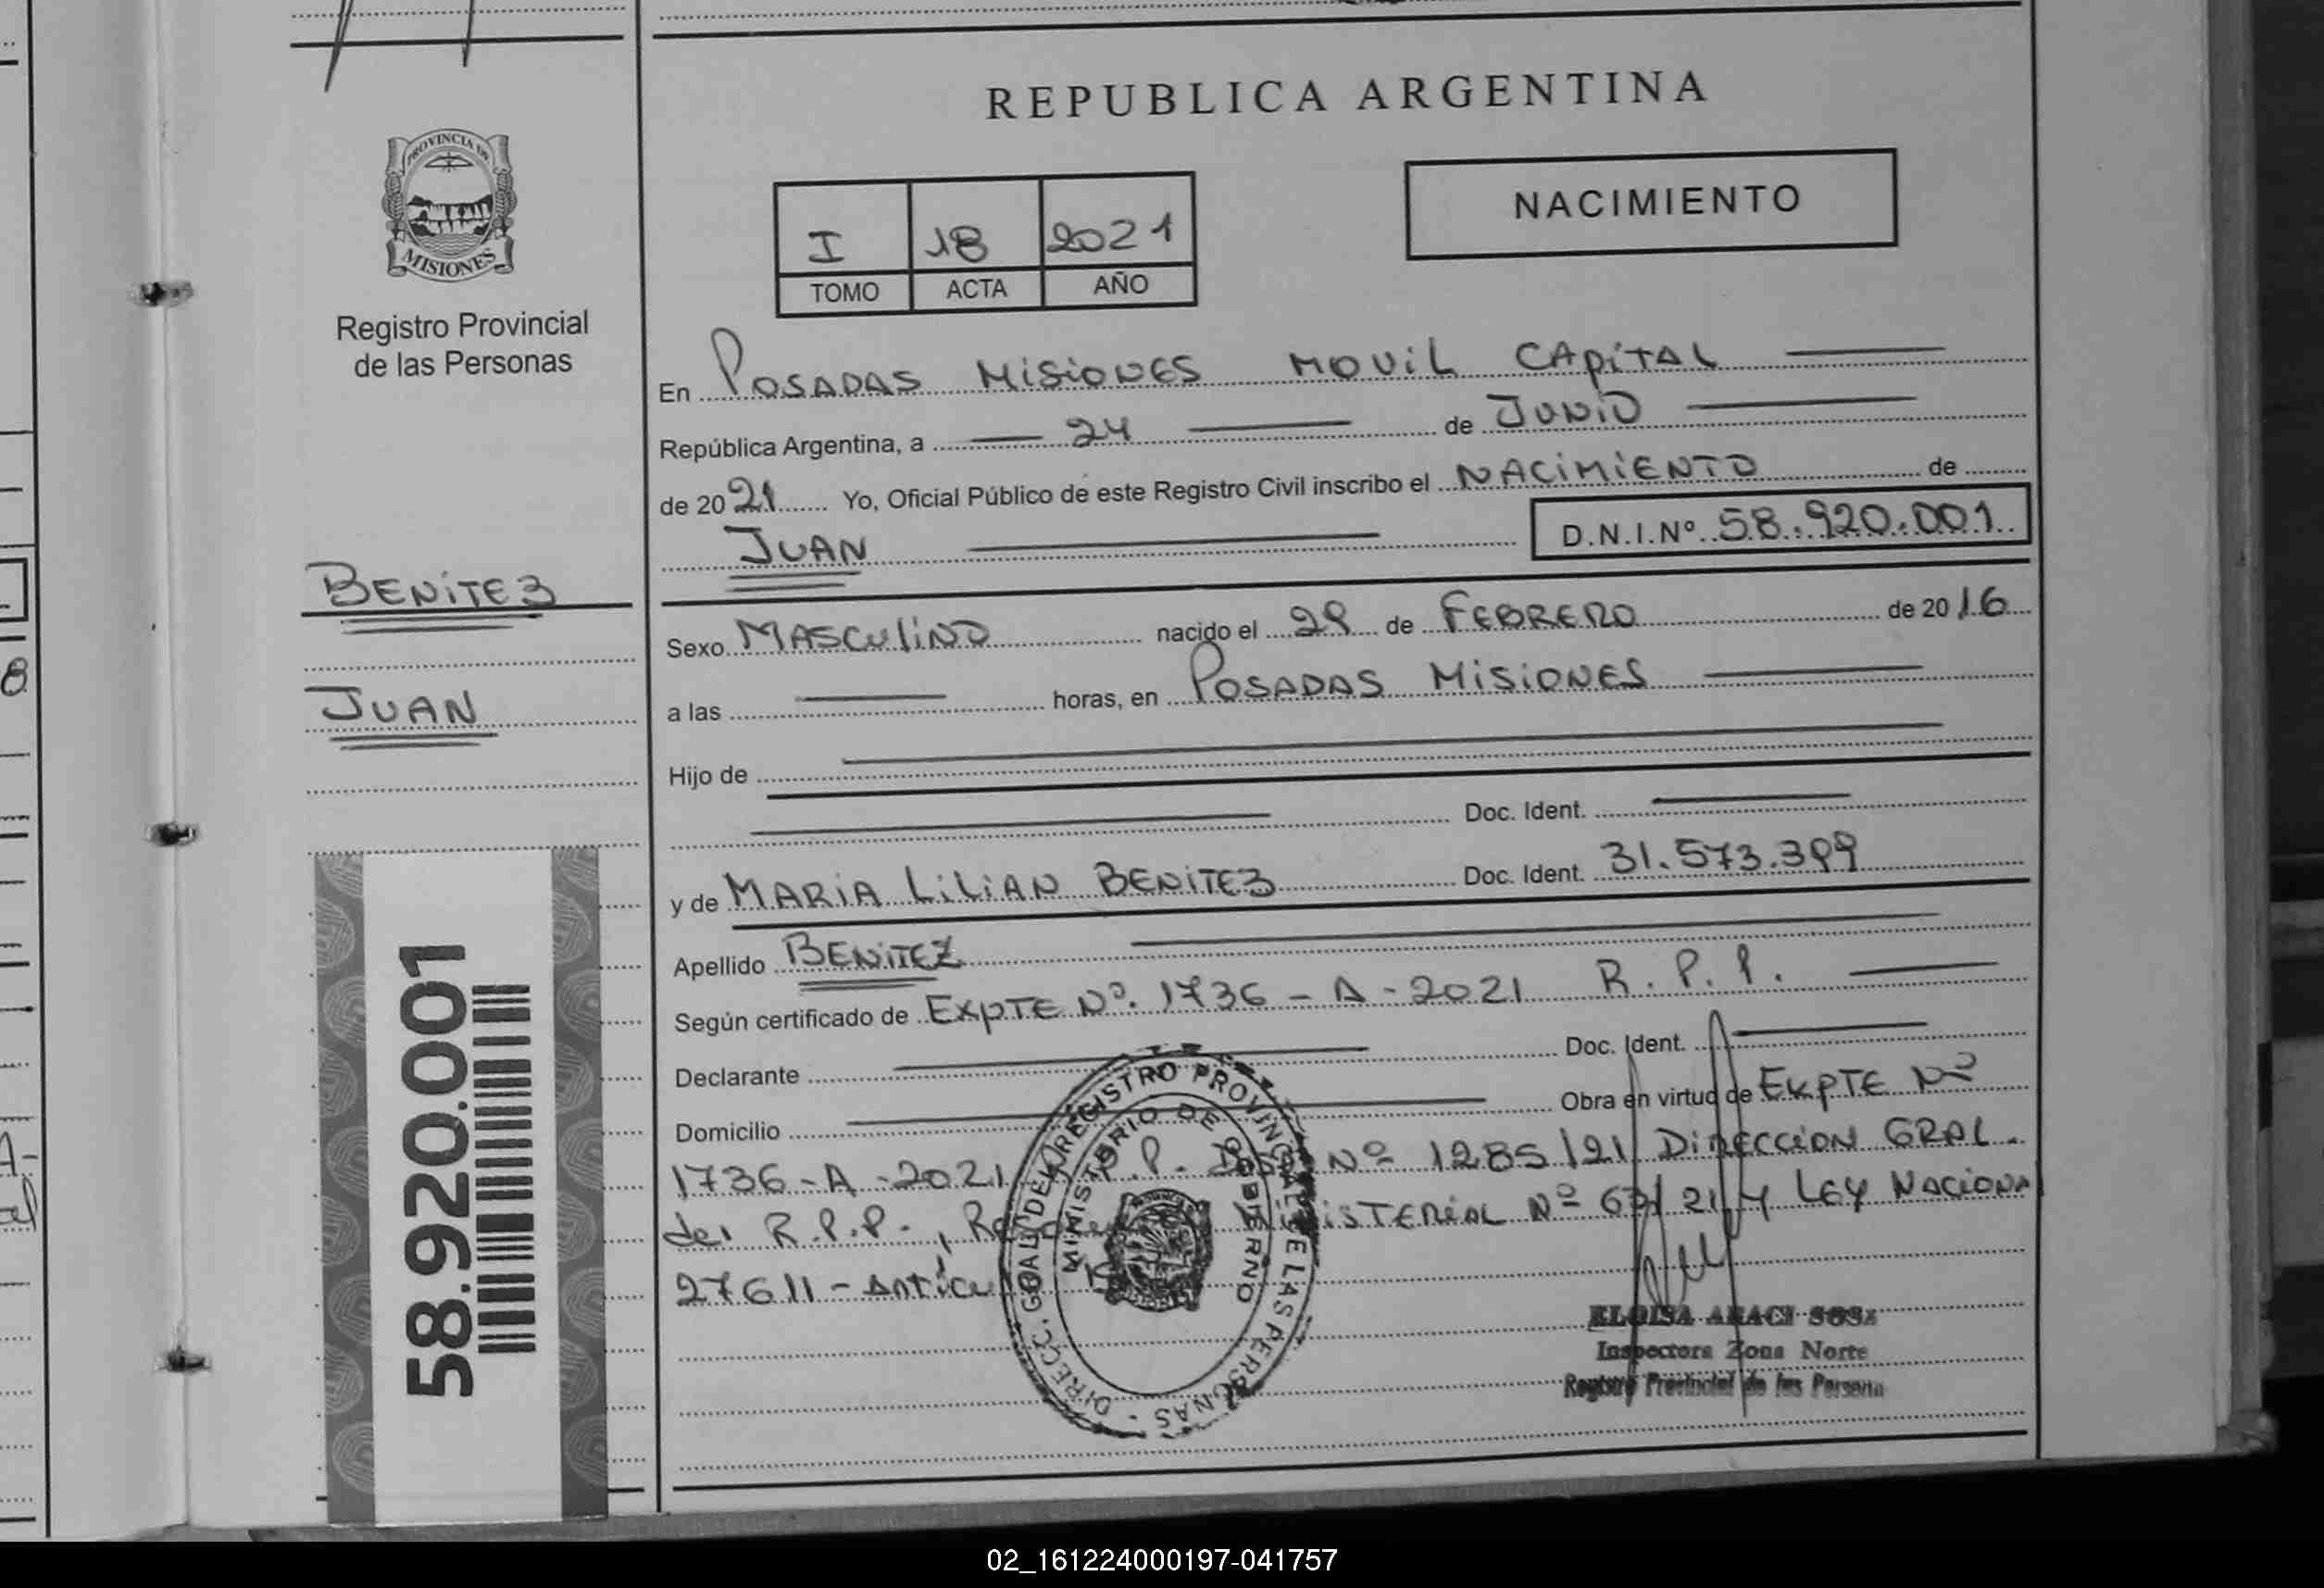 REPUBLICA ARGENTINA
PROVINCIA DE
MISIONES
Registro Provincial
de las Personas
NACIMIENTO
I 18 2021
TOMO ACTA AÑO
En POSADAS MISIONES MOVIL CAPITAL
República Argentina, a 24 de JUNIO
de 2021 Yo, Oficial Público de este Registro Civil inscribo el NACIMIENTO de
JUAN D.N.I.Nº 58.920.001
BENITEZ
JUAN
58.920.001
Sexo MASCULINO nacido el 29 de FEBRERO de 2016
a las horas, en POSADAS MISIONES
Hijo de
Doc. Ident.
y de MARIA LILIAN BENITEZ Doc. Ident. 31.573.399
Apellido BENITEZ
Según certificado de EXPTE Nº. 1736-A-2021 R.P.P.
Declarante Doc. Ident.
Domicilio Obra en virtud de EXPTE Nº
1736-A-2021 Nº 1285/21 DIRECCION GRAL.
del R.P.P., Nº 63/21 y LEY NACIONAL
27611-
DIRECC. GRAL. DEL REGISTRO PROVINCIAL DE LAS PERSONAS
MINISTERIO DE GOBIERNO
ELOISA ARACI SOSA
Inspectora Zona Norte
Registro Provincial de las Persona
02_161224000197-041757